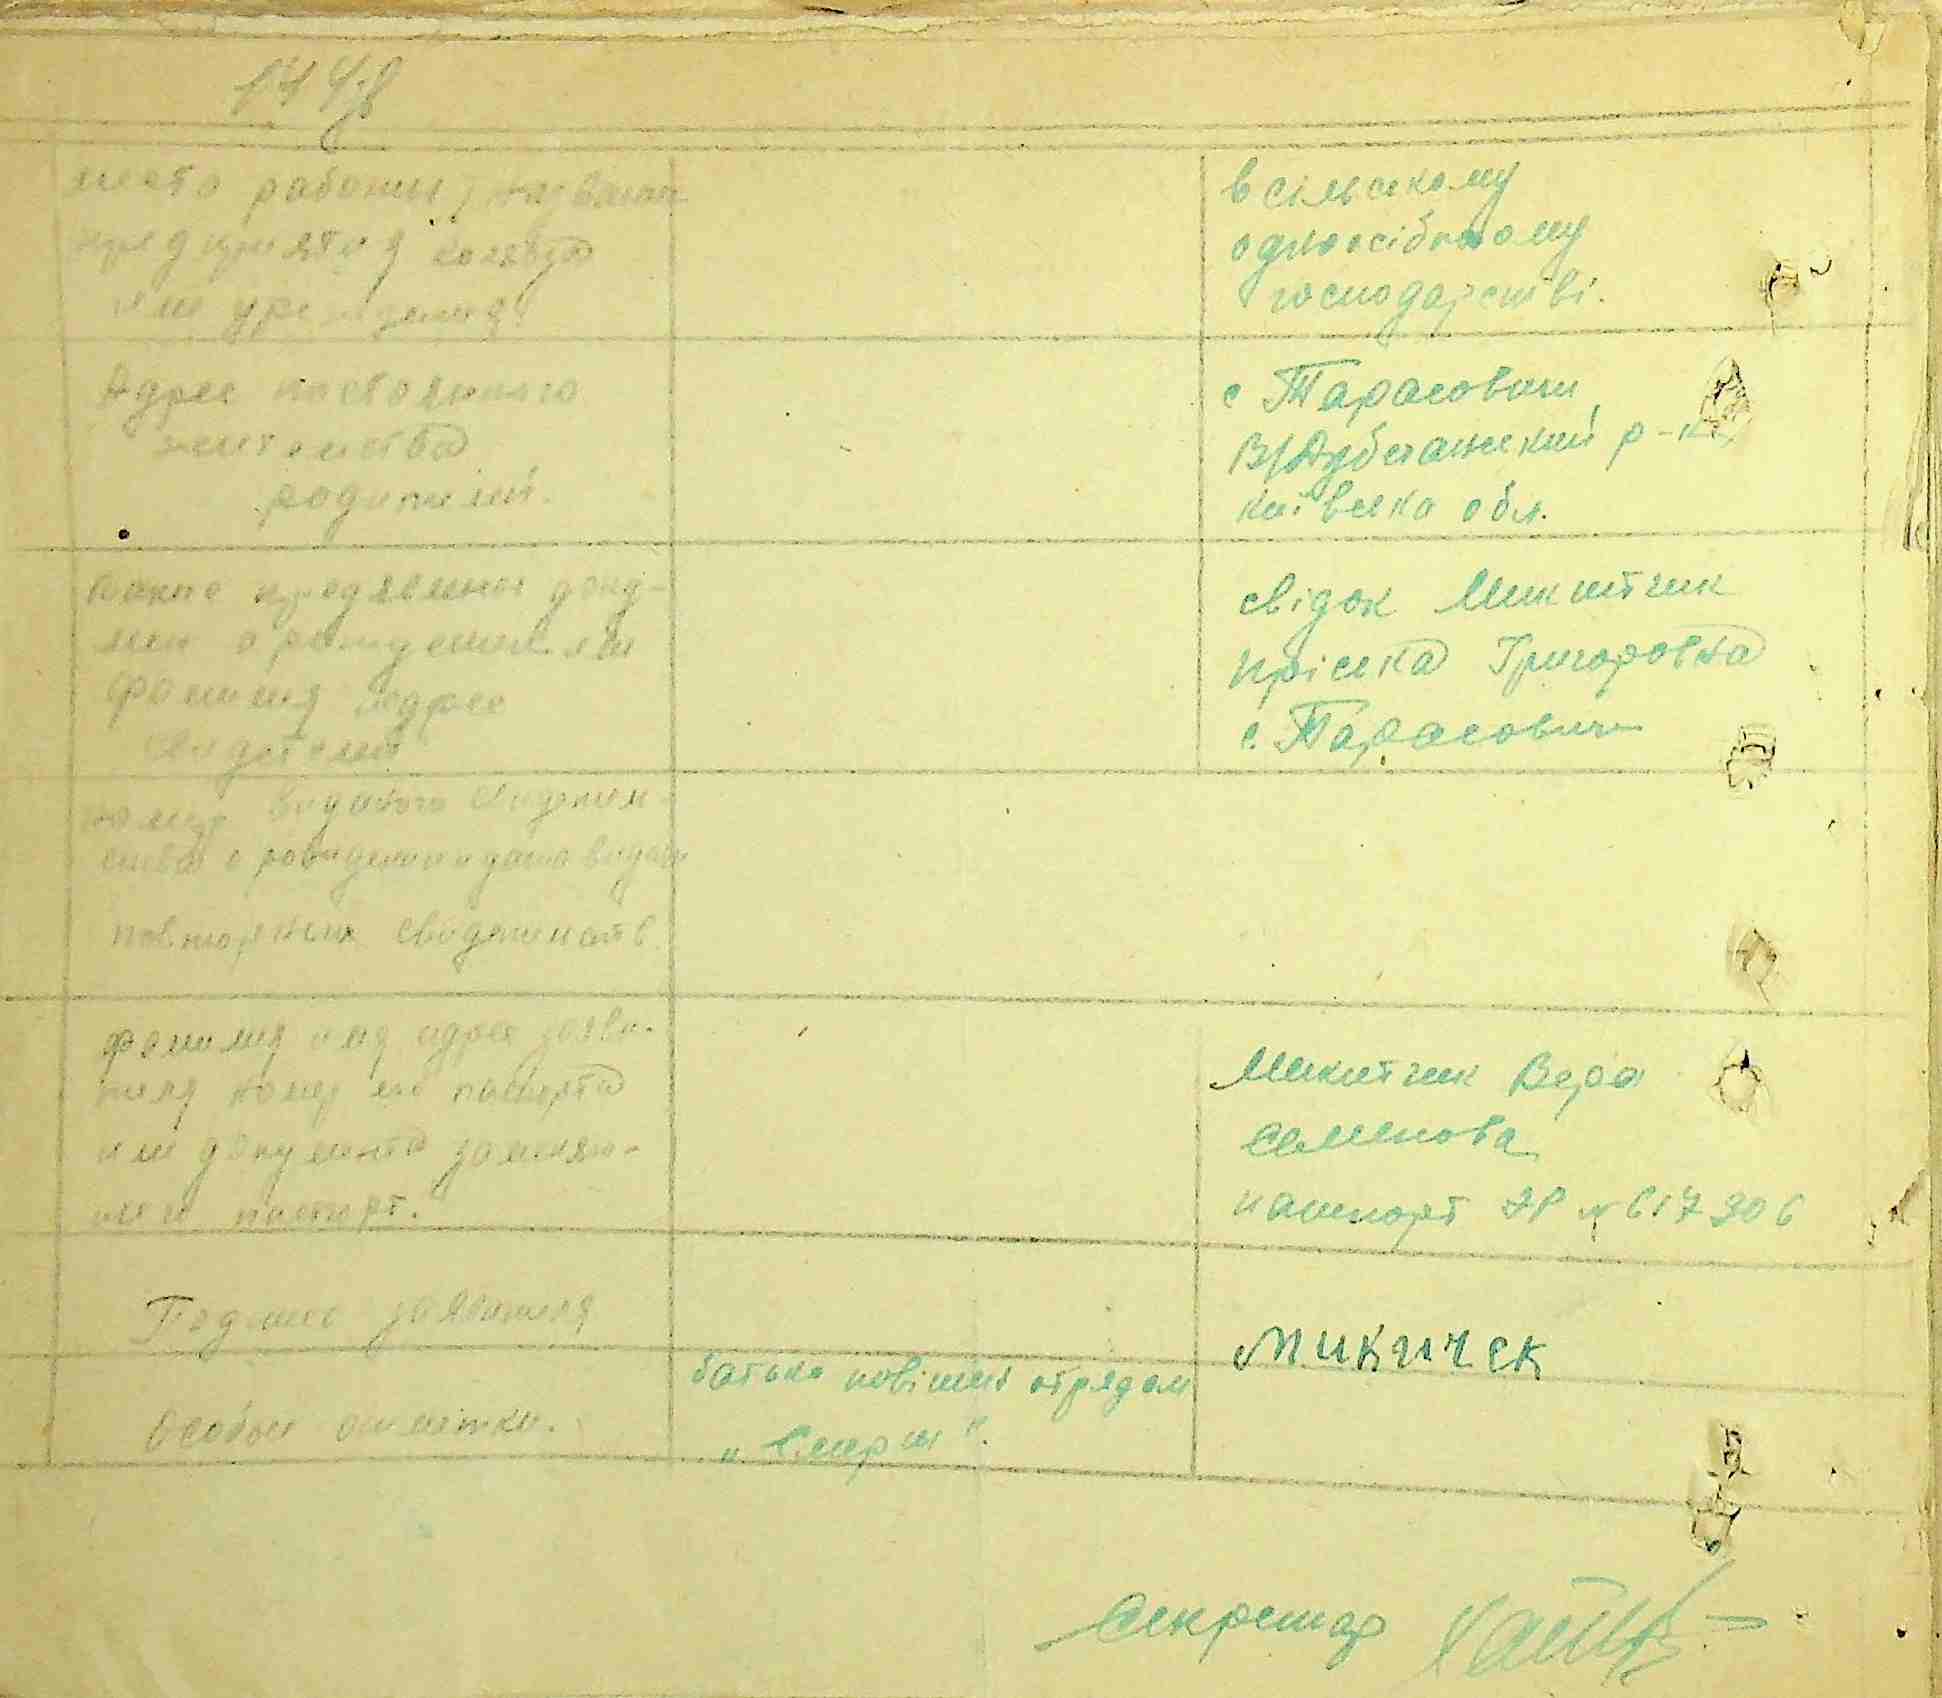 место работы, названи
предприятия колхоза
или учреждения
в сільському
одноосібному
господарстві.
Адрес постоянного
жительства
родителей.
с Тарасовичи
В/Дубечанский р-н
київська обл.
какие предявлены доку-
мен о рождении или
фамилия адрес
свидетелей
свідок Микитчик
Пріська Григоровна
с. Тарасовичи
номер видоного свидетель-
ства о рождении и дата видачи
повторных свидетельств
фамилия имя адрес заяви-
теля номер его паспорта
или документа заменяю-
щего паспорт.
Микитчик Вера
Семенова
пашпорт № 617306
Подпись заявителя
микичек
Особые отметки.
батько повішен отрядом
„Смерш".
Секретар